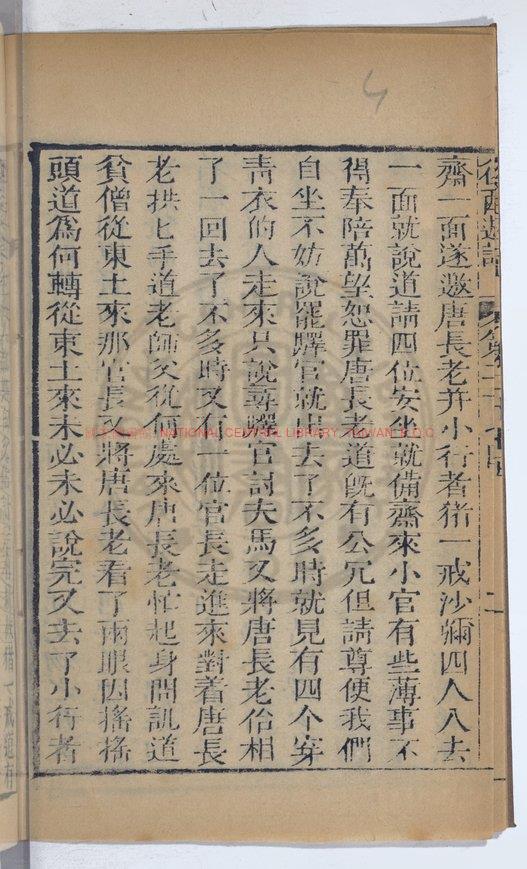 後西遊記
齋一面遂邀唐長老并小行者猪一戒沙彌四人入去
一面就說道請四位安坐就備齋來小官有些薄事不
得奉陪萬望恕罪唐長老道既有公冗但請尊便我們
自坐不妨說罷驛官就出去了不多時就見有四个穿
青衣的人走來只說尋驛官討夫馬又將唐長老佮相
了一回去了不多時又有一位官長走進來對着唐長
老拱七手道老師父從何處來唐長老忙起身問訊道
貧僧從東土來那官長又將唐長老看了兩眼因搖搖
頭道為何轉從東土來未必未必說完又去了小行者
NATIONAL CENTRAL LIBRARY, TAIWAN R.O.C